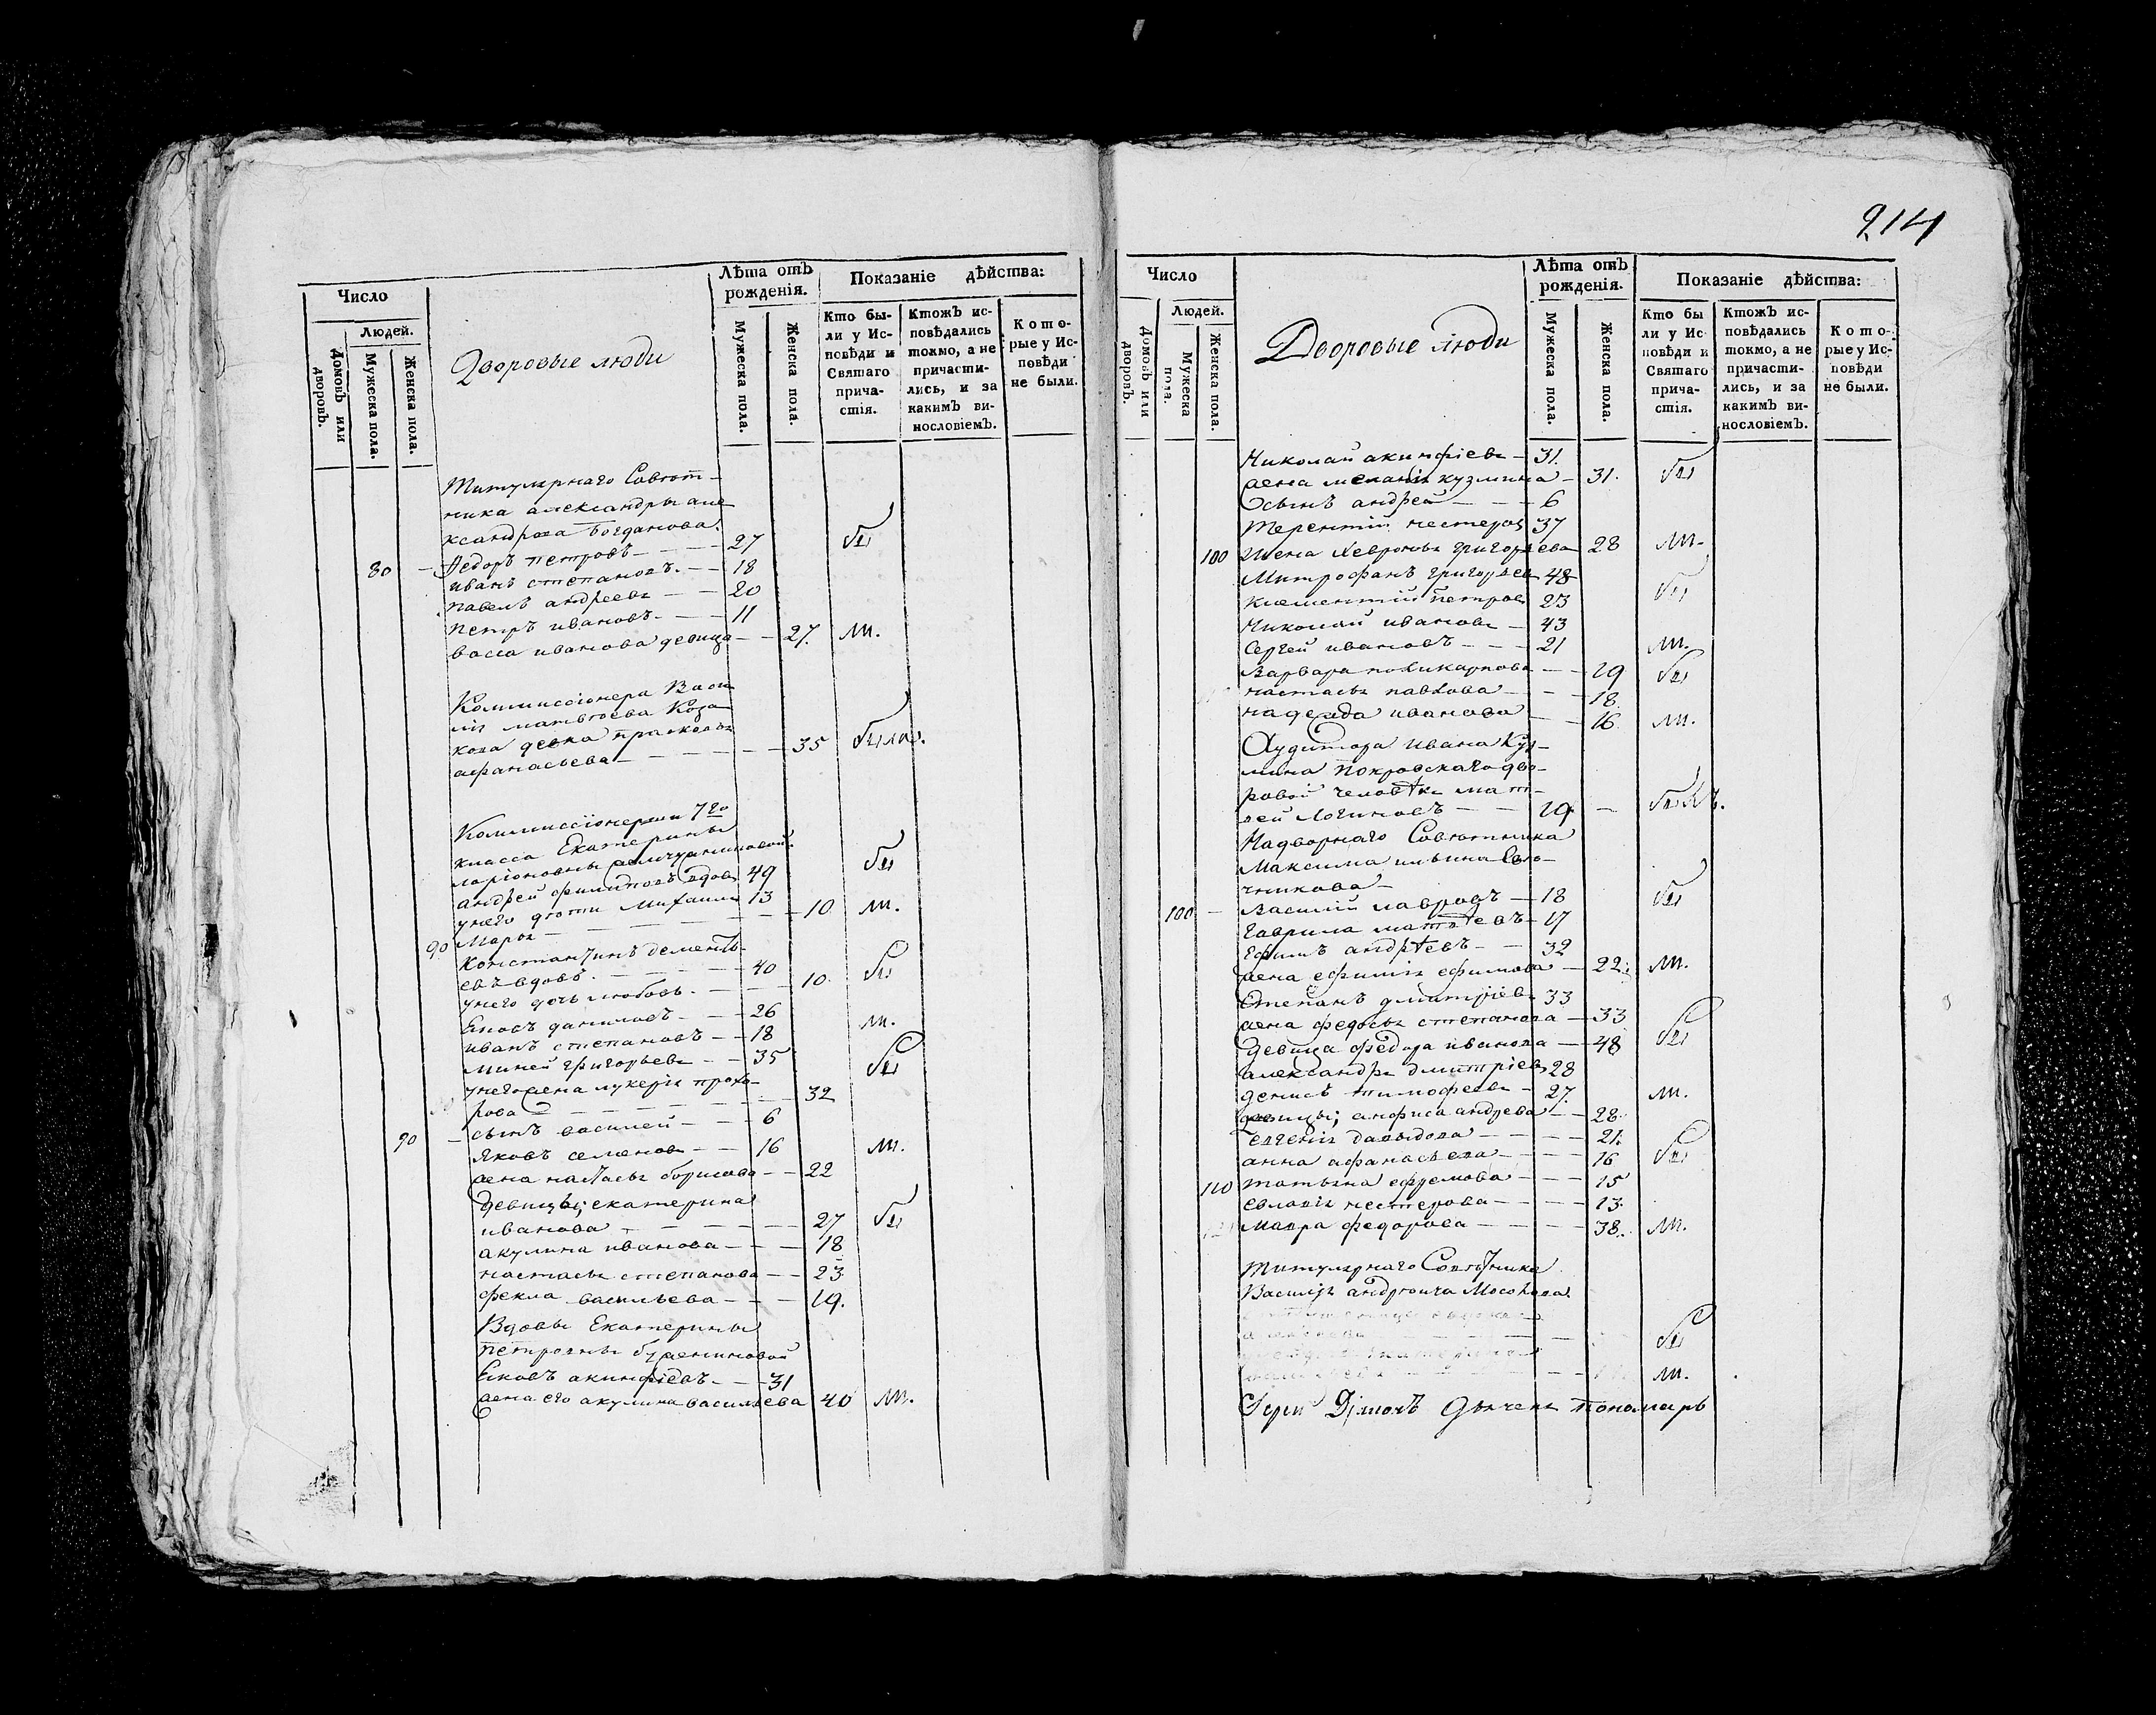 214
Число
Людей.
Домовъ или дворовъ.
Мужеска пола.
Женска пола.
Дворовые люди
Лѣта отъ рожденія.
Мужеска пола.
Женска пола.
Показаніе дѣйства:
Кто бы-
ли у Ис-
повѣди и
Святаго
прича-
стія.
Ктожъ ис-
повѣдались
токмо, а не
причасти-
лись, и за
какимъ ви-
нословіемъ.
Кото-
рые у Ис-
повѣди
не были.
Титулярнаго Совѣт-
ника александры але
ксандрова Богданова.
80 Федоръ петровъ 27 бы
иванъ степановъ. 18
павелъ андреевъ 20
петръ ивановъ. 11
васса иванова девица 27. ли.
Коммиссіонера Васи
лія матвѣева Коза
кова девка прасковья
афанасьева 35 были.
Коммиссіонерши 7го
класса Екатерины
ларіоновны
андрей филиповъ вдовъ 49 бы
унего дѣти Михаила 13
90 Марѳа 10 ли.
Константинъ дементь-
евъ вдовъ. 40 бы
унего дочь любовь. 10.
Яковъ даниловъ 26
иванъ степановъ 18 ли.
миней григорьевъ 35 бы
унего жена лукерія прохо-
рова 32
90 сынъ василей 6
Яковъ семеновъ 16 ли.
жена настасья борисова 22
Девицы; екатерина
иванова 27 бы
акулина иванова 18
настасья степанова 23
фекла васильева 19.
Вдовы Екатерины
петровны бужениновой
Яковъ акинфіевъ 31
жена его акулина васильева 40 ли.
Число
Людей.
Домовъ или дворовъ.
Мужеска пола.
Женска пола.
Дворовые люди
Лѣта отъ рожденія.
Мужеска пола.
Женска пола.
Показаніе дѣйства:
Кто бы
ли у Ис
повѣди и
Святаго
прича-
стія.
Ктожъ ис-
повѣдались
токмо, а не
причасти-
лись, и за
какимъ ви-
нословіемъ.
Кото-
рые у Ис-
повѣди
не были.
Николай акинфіевъ 31.
жена меланія кузмина 31. бы
Сынъ андрей 6
Терентій нестеровъ 37
100 Жена Хевронья григорьева 28 ли.
Митрофанъ григорьевъ 48
климентій петровъ 23 бы
Николай ивановъ 43
Сергей ивановъ 21 ли.
Варвара поликарпова 19 бы
настасья павлова 18.
надежда иванова 16. ли.
Аудитора ивана Куз-
мина покровскаго дво-
ровой человѣкъ мат-
вей Логиновъ 19 былъ.
Надворнаго Совѣтника
Максима ильина
чникова
100 Василій лавровъ 18 бы
гаврила матвѣевъ 17
Ефимъ андрѣевъ 32
жена ефимія ефимова 22. ли.
Степанъ дмитріевъ 33
жена федосья степанова 33
Девица федора иванова 48 бы
александръ дмитріевъ 28
денисъ тимофеевъ 27. ли.
девицы; анфиса андреева 28.
евгенія давыдова 21.
анна афанасьева 16 бы
110 татьяна ефремова 15
евлапія нестерова 13.
мавра федорова 38. ли.
Титулярнаго Совѣтника
Василія андреича Мосолова.
бы
ли.
Іерей Діаконъ Дьячекъ Пономарь